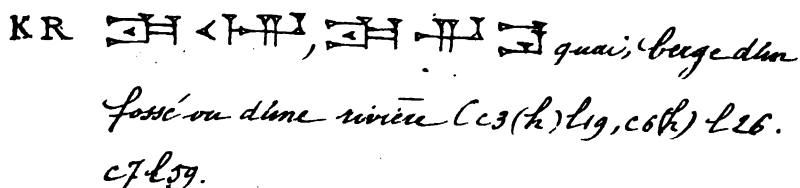 KR , quai, berge d'un
fossé ou d'une rivière (c3(h) l19, c6(h) l26.
c7 l59.